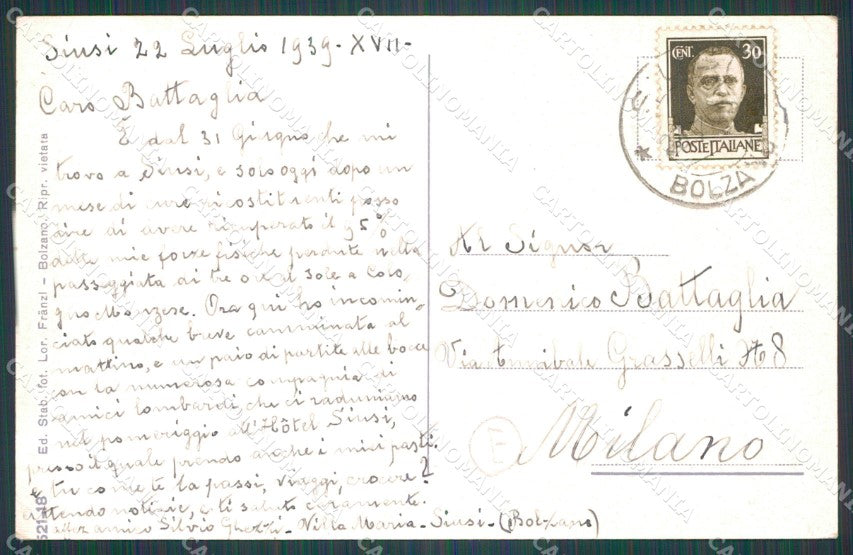 Siusi 22 Luglio 1939 - XVII -
Caro Battaglia
È dal 31 Giugno che mi
trovo a Siusi, e solo oggi dopo un
mese di cure ricostituenti posso
dire di avere ricuperato il 95%
delle mie forze fisiche perdute nella
passeggiata di tre ore al sole a Colo,
gno Monzese. Ora qui ho incomin,
ciato qualche breve camminata al
mattino, e un paio di partite alle bocce
con la numerosa compagnia di
amici lombardi, che ci raduniamo
nel pomeriggio all'Hôtel Siusi,
presso il quale prendo anche i miei pasti.
e tu come te la passi, viaggi, crociere?
attendo notizie, e ti saluto caramente.
amico Silvio - Villa Maria - Siusi - (Bolzano)
CENT. 30
POSTE ITALIANE
BOLZA
Al Signor
Domenico Battaglia
Via Annibale Grasselli N 8
Milano
Ed. Stab. fot. Lor. Fränzl - Bolzano. Ripr. vietata
CARTOLINOMANIA